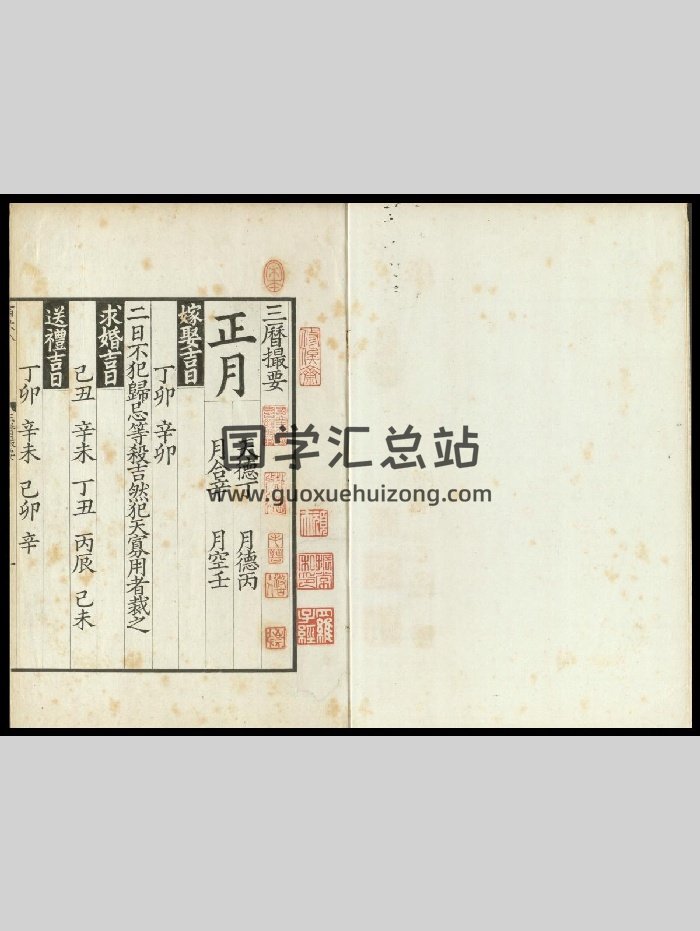 三曆撮要
正月
天德丁 月德丙
月合辛 月空壬
嫁娶吉日
丁卯 辛卯
二日不犯歸忌等殺吉然犯天寡用者裁之
求婚吉日
己丑 辛未 丁丑 丙辰 己未
送禮吉日
丁卯 辛未 己卯 辛
国学汇总站
www.guoxuehuizong.com